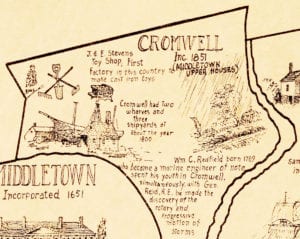 CROMWELL
Inc 1851
(MIDDLETOWN
UPPER HOUSES)
J. & E. Stevens
Toy Shop, First
Factory in this country to
make cast iron toys
Cromwell had two
wharves and
three
shipyards at
about the year
1800
Wm C. Redfield born 1789
became a marine engineer of note
spent his youth in Cromwell,
simultaneously with Gen.
Reid, R.E. he made the
discovery of the
rotary and
progressive
motion of
storms
MIDDLETOWN
Incorporated 1651
Sam
in